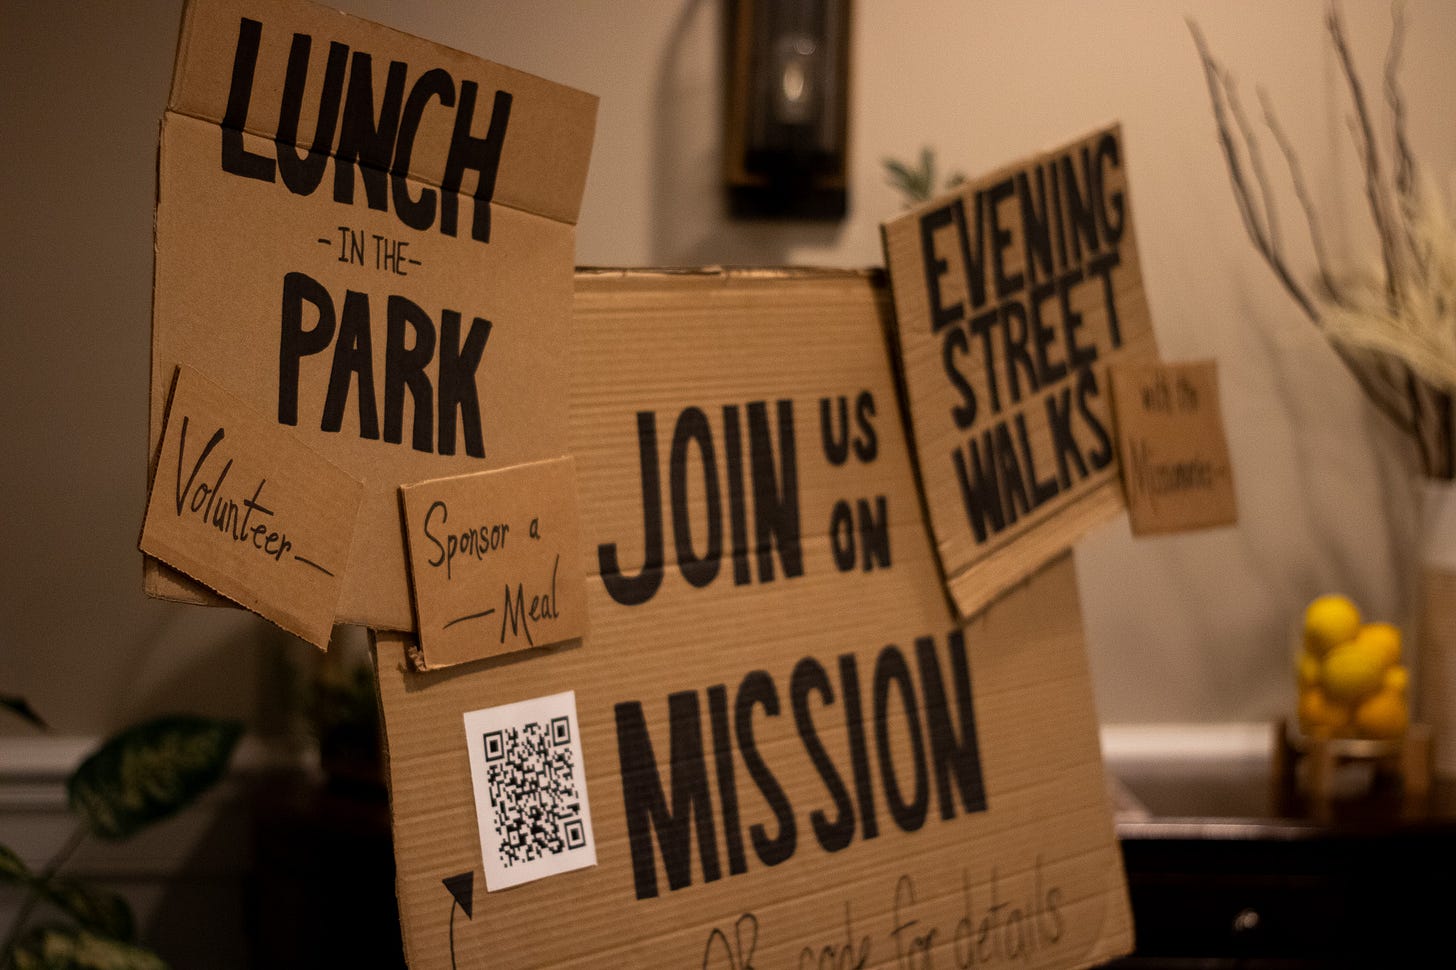 LUNCH
-IN THE-
PARK
Volunteer—
Sponsor a
—Meal
JOIN US
ON
MISSION
QR code for details
EVENING
STREET
WALKS
with the